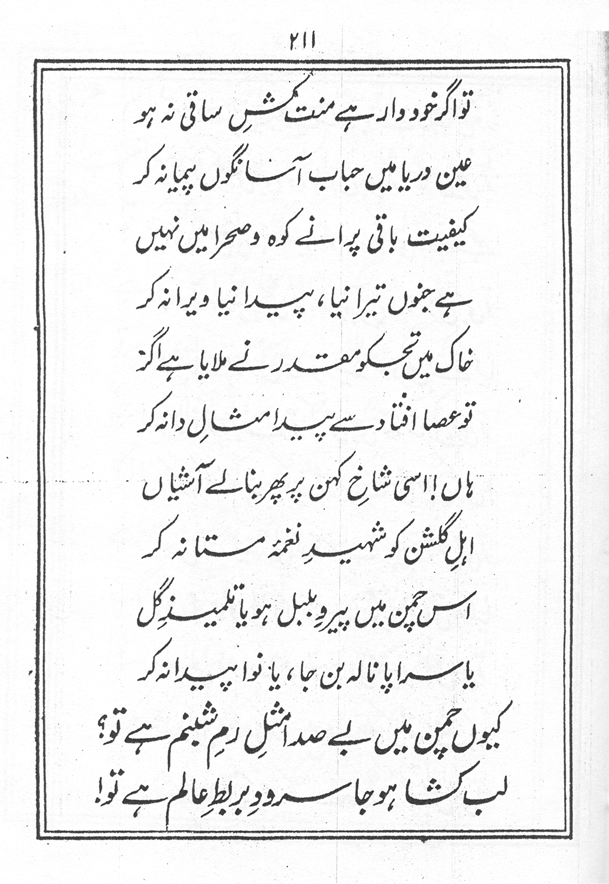 ۲۱۱
تو اگر خود دار ہے منت کشِ ساقی نہ ہو
عین دریا میں حباب آسا نگوں پیمانہ کر
کیفیت باقی پرانے کوہ و صحرا میں نہیں
ہے جنوں تیرا نیا، پیدا نیا ویرانہ کر
خاک میں تجکو مقدر نے ملایا ہے اگر
تو عصا افتاد سے پیدا مثالِ دانہ کر
ہاں! اسی شاخِ کہن پر پھر بنا لے آشیاں
اہلِ گلشن کو شہیدِ نغمۂ مستانہ کر
اس چمن میں پیروِ بلبل ہو یا تلمیذِ گل
یا سراپا نالہ بن جا، یا نوا پیدا نہ کر
کیوں چمن میں بے صدا مثلِ رمِ شبنم ہے تو؟
لب کشا ہو جا سرودِ بربطِ عالم ہے تو!